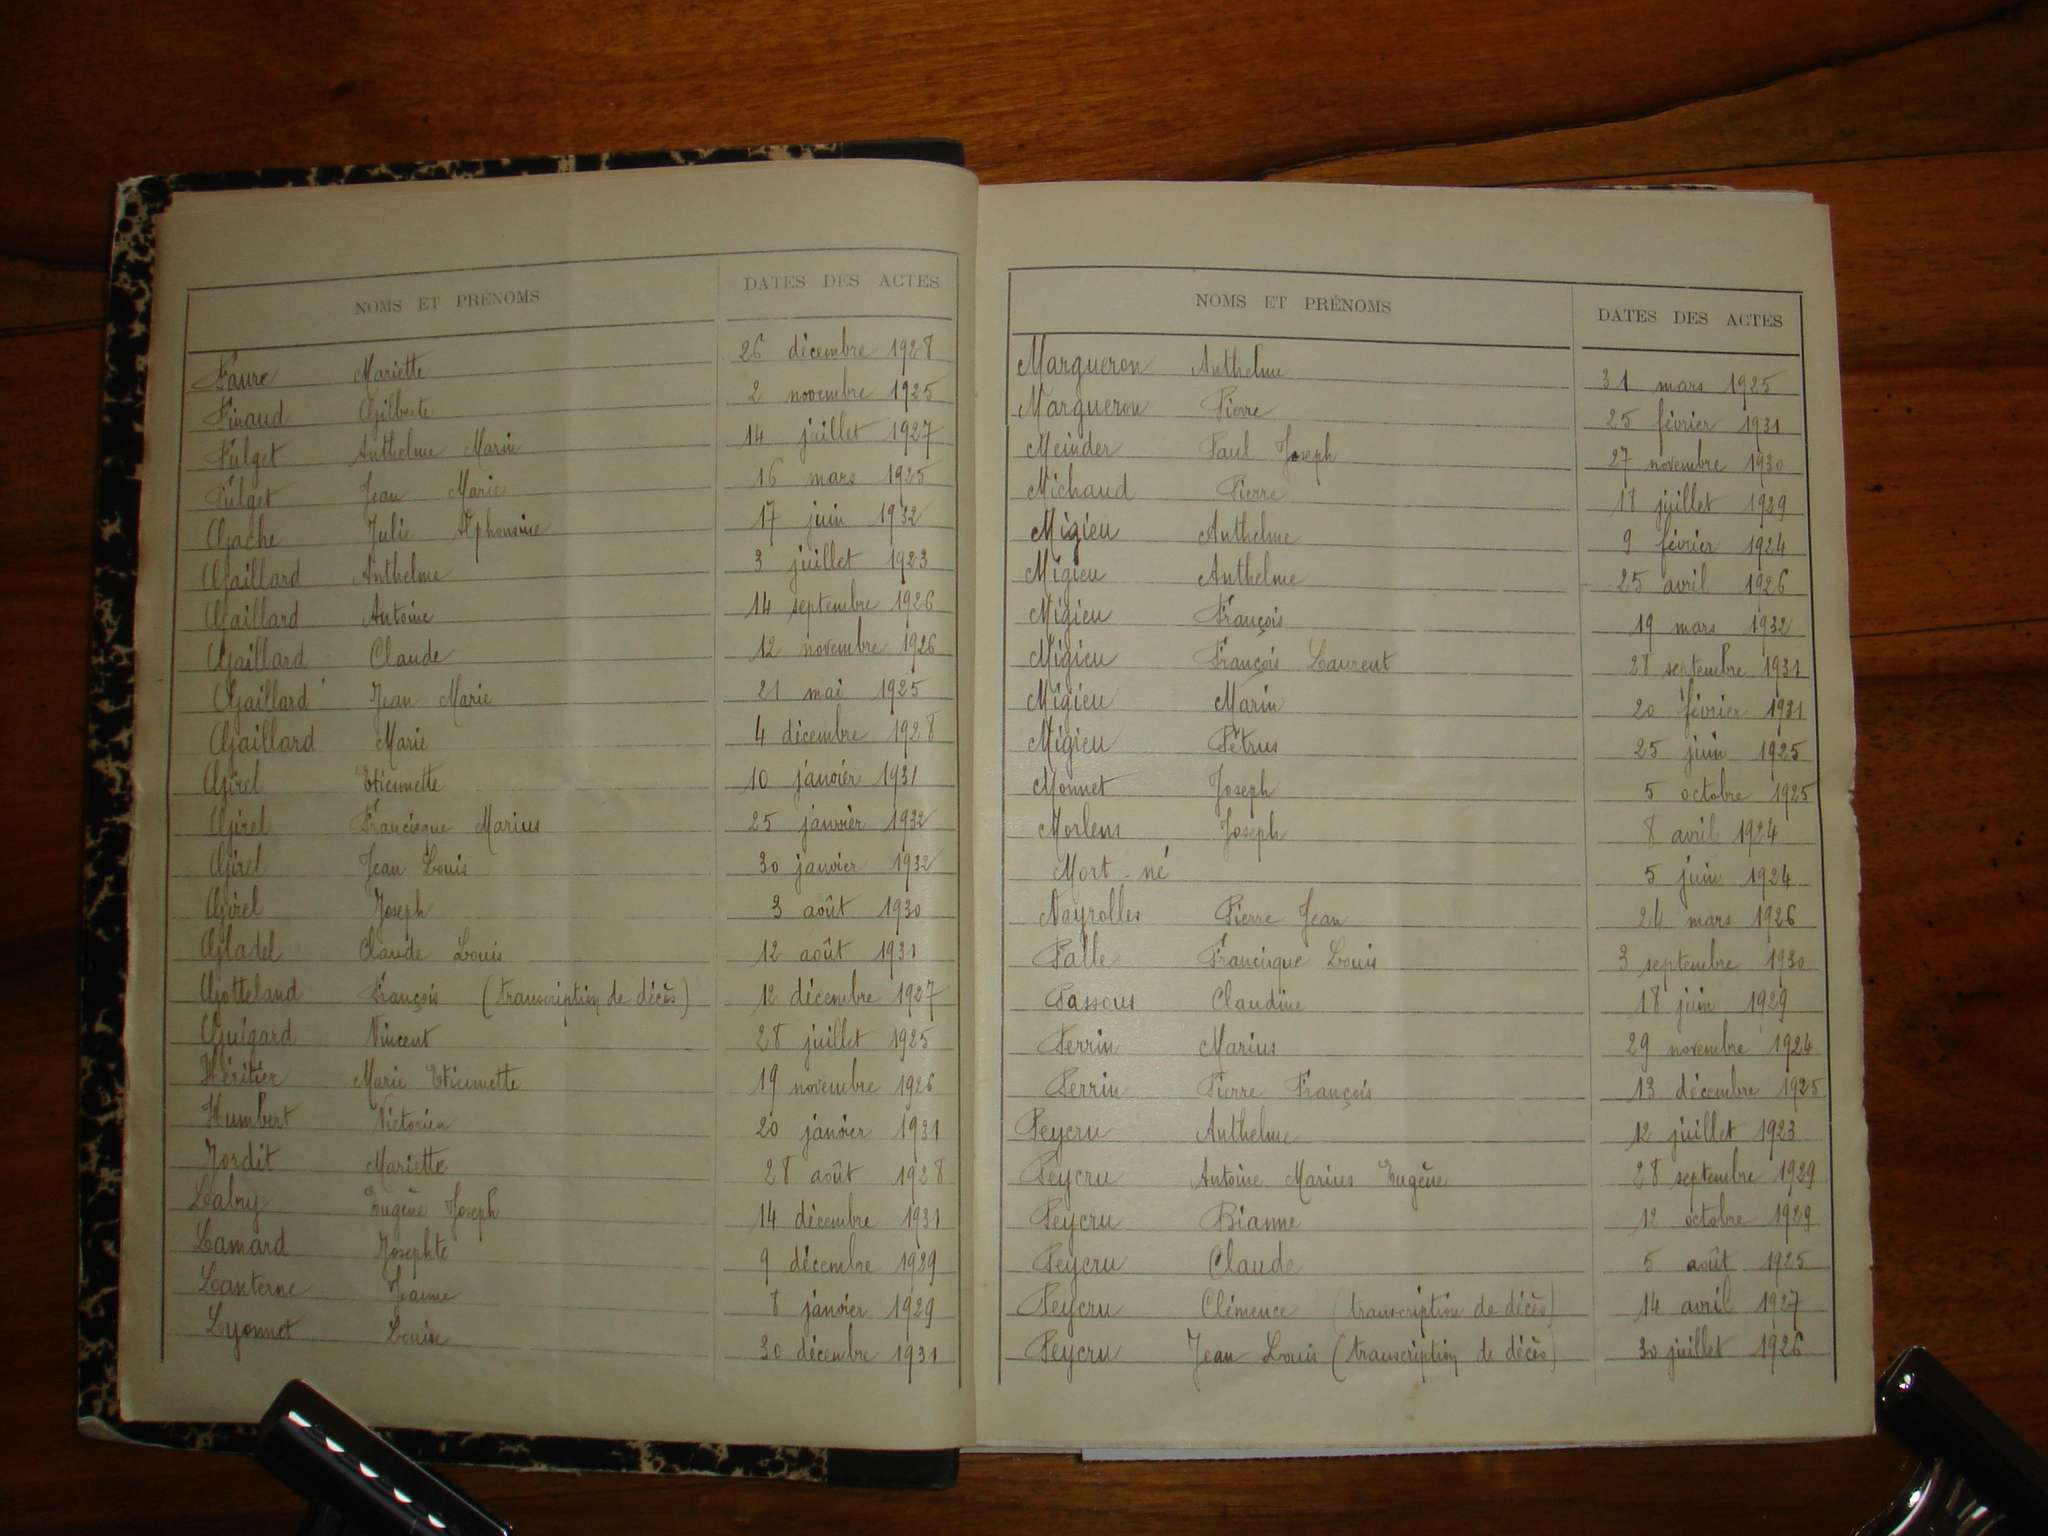 NOMS ET PRÉNOMS DATES DES ACTES
Faure Mariette 26 décembre 1928
Finaud Gilberte 2 novembre 1925
Fulget Anthelme Marin 14 juillet 1927
Fulget Jean Marie 16 mars 1925
Gache Julie Alphonsine 17 juin 1932
Gaillard Anthelme 3 juillet 1923
Gaillard Antoine 14 septembre 1926
Gaillard Claude 12 novembre 1926
Gaillard Jean Marie 21 mai 1925
Gaillard Marie 4 décembre 1928
Girel Etiennette 10 janvier 1931
Girel Francisque Marius 25 janvier 1932
Girel Jean Louis 30 janvier 1932
Girel Joseph 3 août 1930
Gladel Claude Louis 12 août 1931
Gotteland François (transcription de décès) 12 décembre 1927
Guigard Vincent 28 juillet 1925
Héritier Marie Etiennette 19 novembre 1926
Humbert Victorien 20 janvier 1931
Jordit Mariette 28 août 1928
Labry Eugène Joseph 14 décembre 1931
Lamard Josephte 9 décembre 1929
Lanterne Jeanne 8 janvier 1929
Lyonnet Louise 30 décembre 1931
NOMS ET PRÉNOMS DATES DES ACTES
Margueron Anthelme 31 mars 1925
Margueron Pierre 25 février 1931
Meinder Paul Joseph 27 novembre 1930
Michaud Pierre 18 juillet 1929
Migieu Anthelme 9 février 1924
Migieu Anthelme 25 avril 1926
Migieu François 19 mars 1932
Migieu François Laurent 28 septembre 1931
Migieu Marin 20 février 1931
Migieu Pétrus 25 juin 1925
Monnet Joseph 5 octobre 1925
Morlens Joseph 8 avril 1924
Mort-né 5 juin 1924
Nayrolles Pierre Jean 24 mars 1926
Palle Francisque Louis 3 septembre 1930
Passous Claudine 18 juin 1929
Perrin Marius 29 novembre 1924
Perrin Pierre François 13 décembre 1925
Peycru Anthelme 12 juillet 1923
Peycru Antoine Marius Eugène 28 septembre 1929
Peycru Bianne 12 octobre 1929
Peycru Claude 5 août 1925
Peycru Clémence (transcription de décès) 14 avril 1927
Peycru Jean Louis (transcription de décès) 30 juillet 1926